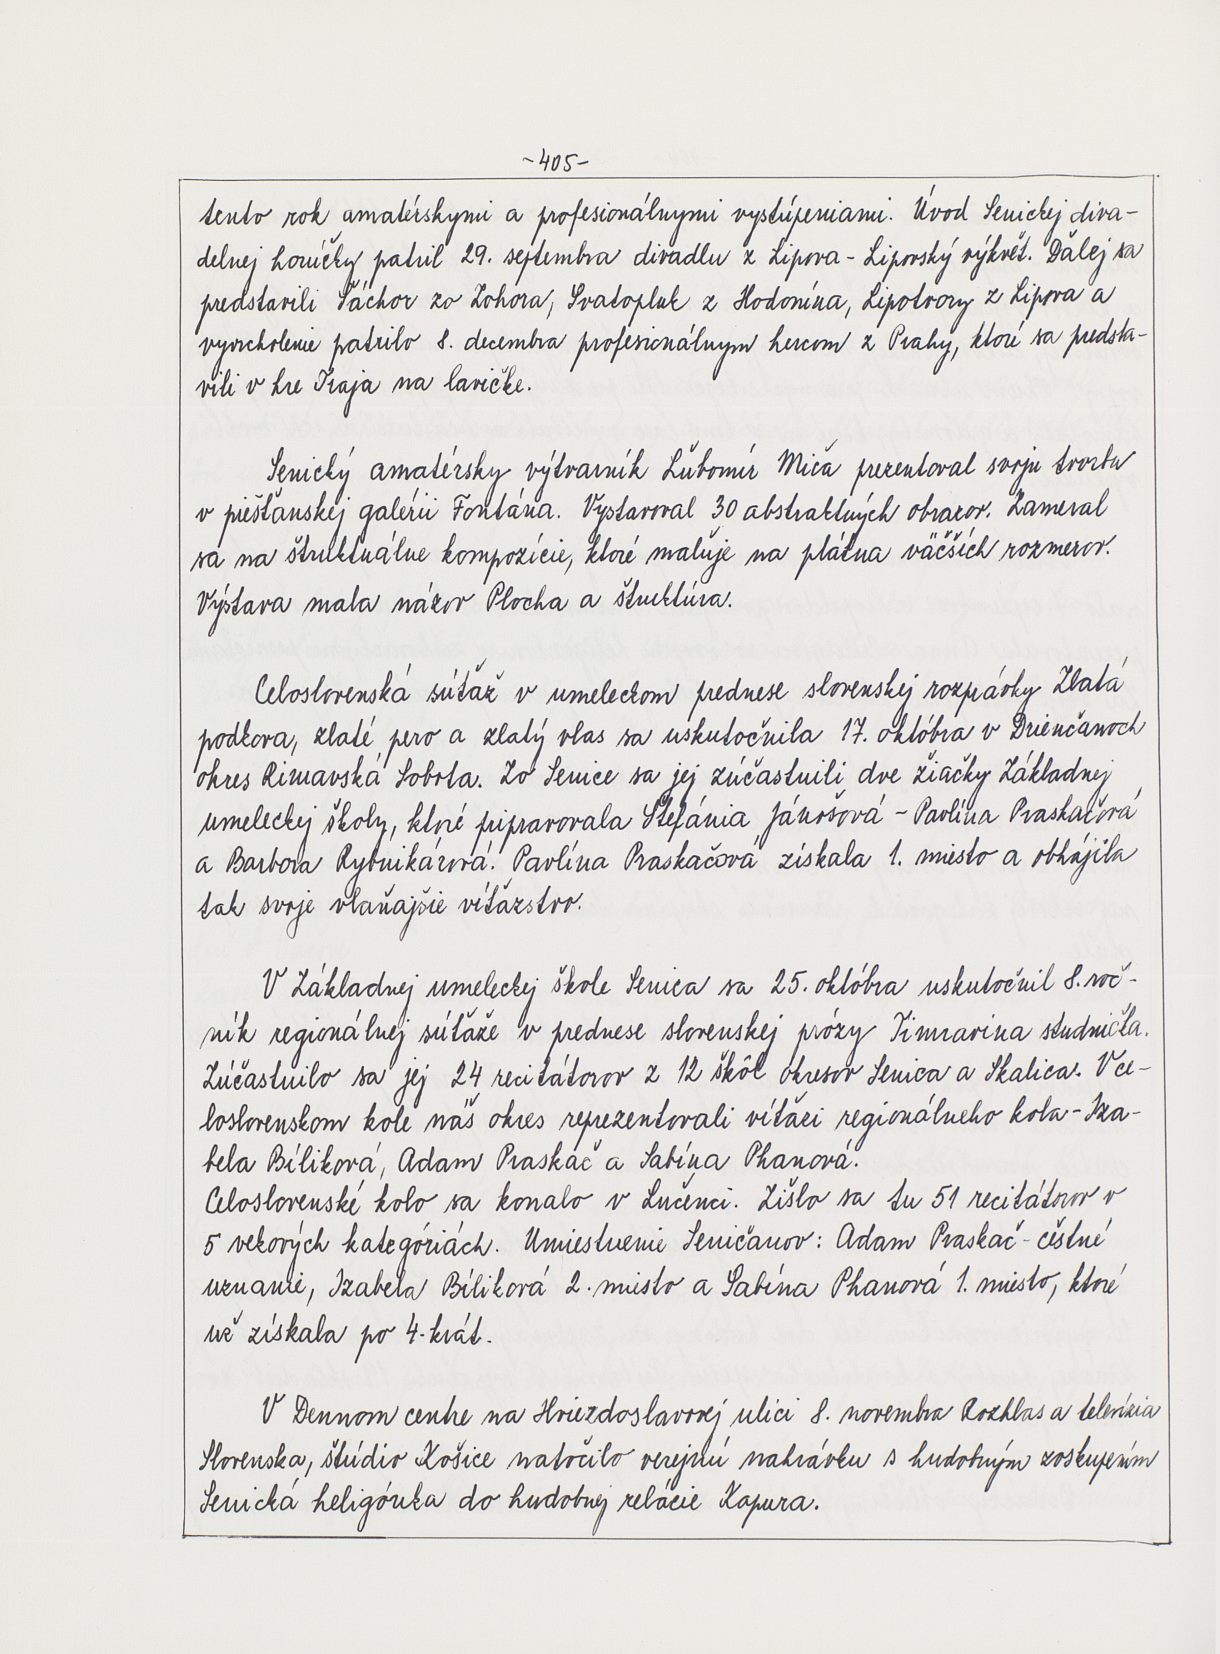 -405-
tento rok amatérskymi a profesionálnymi vystúpeniami. Úvod Senickej diva-
delnej horúčky patril 29. septembra divadlu z Lipova - Lipovský výkvět. Ďalej sa
predstavili Šáchor zo Zohora, Svatopluk z Hodonína, Lipotvory z Lipova a
vyvrcholenie patrilo 8. decembra profesionálnym hercom z Prahy, ktoré sa predsta-
vili v hre Traja na lavičke.
Senický amatérsky výtvarník Ľubomír Miča prezentoval svoju tvorbu
v piešťanskej galérii Fontána. Vystavoval 30 abstraktných obrazov. Zameral
sa na štruktuálne kompozície, ktoré maľuje na plátna väčších rozmerov.
Výstava mala názov Plocha a štuktúra.
Celoslovenská súťaž v umeleckom prednese slovenskej rozprávky Zlatá
podkova, zlaté pero a zlatý vlas sa uskutočnila 17. októbra v Drienčanoch
okres Rimavská Sobota. Zo Senice sa jej zúčastnili dve žiačky Základnej
umeleckej školy, ktoré pripravovala Štefánia Jánošová - Pavlína Praskačová
a Barbora Rybnikárová. Pavlína Praskačová získala 1. miesto a obhájila
tak svoje vlaňajšie víťazstvo.
V Základnej umeleckej škole Senica sa 25. októbra uskutočnil 8. roč-
ník regionálnej súťaže v prednese slovenskej prózy Timravina studnička.
Zúčastnilo sa jej 24 recitátorov z 12 škôl okresov Senica a Skalica. V ce-
loslovenskom kole náš okres reprezentovali víťazi regionálneho kola - Iza-
bela Bíliková, Adam Praskač a Sabína Phanová.
Celoslovenské kolo sa konalo v Lučenci. Zišlo sa tu 51 recitátorov v
5 vekových kategóriách. Umiestnenie Seničanov: Adam Praskač - čestné
uznanie, Izabela Bíliková 2. miesto a Sabína Phanová 1. miesto, ktoré
už získala po 4-krát.
V Dennom centre na Hviezdoslavovej ulici 8. novembra Rozhlas a televízia
Slovenska, štúdio Košice natočilo verejnú nahrávku s hudobným zoskupením
Senická heligónka do hudobnej relácie Kapura.